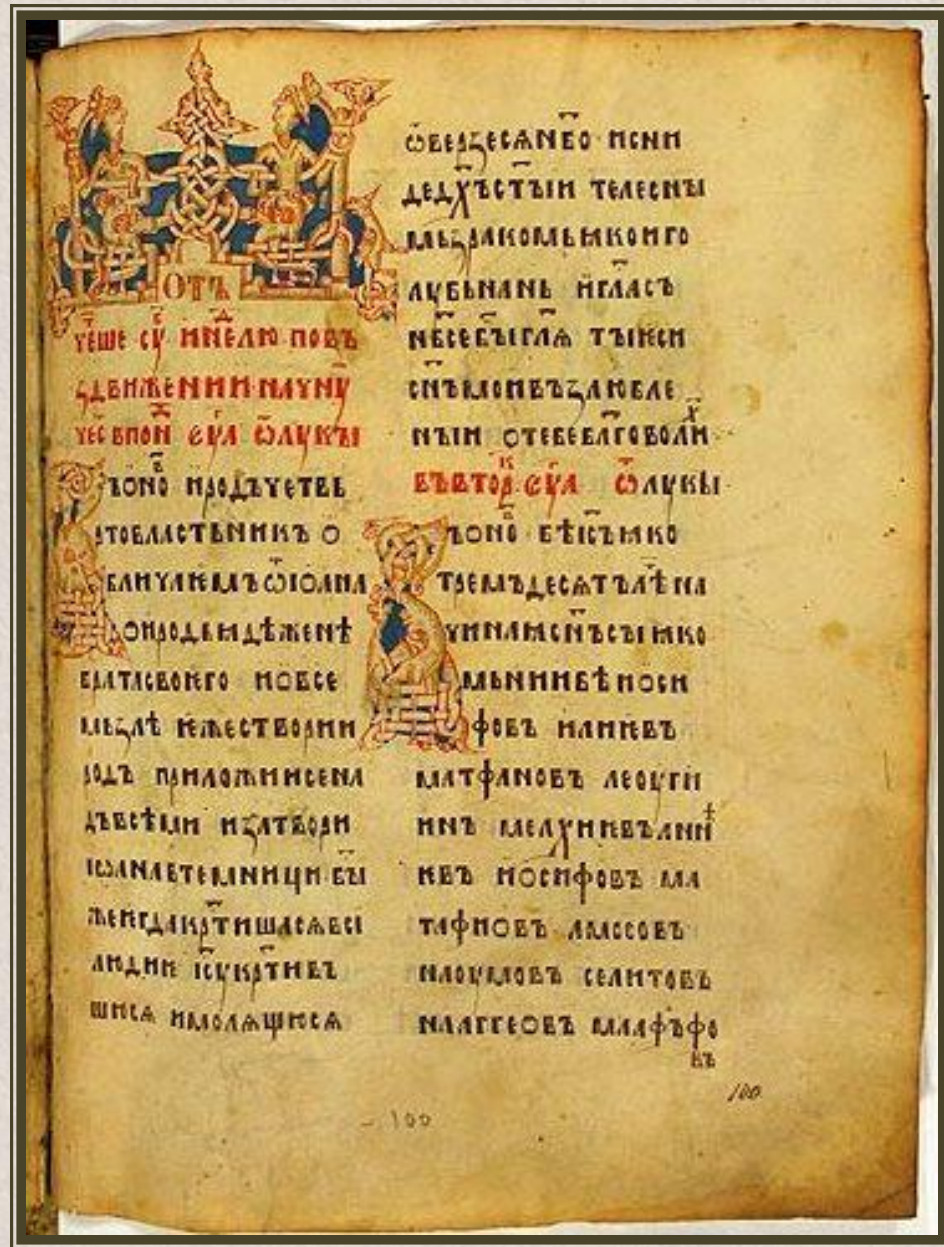 ОТЪ
чт҃ѣше сꙋ҃ и не҃лю повъ
здвижении начнꙋ
чес впон еу҃а ѿлукы
въоно иродъчетвь
ртовластьникъ о
бличаꙗемъѿіоана
оиродьꙗдѣженѣ
братасвоѥго иовсе
мьзлѣ ѥжествории
родъ приложиисена
дъвсѣми изатвори
іѡанавтемници бы҃
жеѥгдакр҃тишасѧвсі
людиѥ іс҃укр҃тивъ
шюсѧ имолѧщюсѧ
ѿверзесѧнб҃о исни
дедх҃ъст҃ыи телесны
мьзракомьꙗкоиго
лубьнань игласъ
нб҃себы҃гл҃ѧ тыѥси
сн҃ъмоивъзлюбле
ныи отебебл҃говолих
въвтор к еу҃а ѿлукы
въоно бѣіс҃ъꙗко
тремъдесѧтълѣ҃на
чинаꙗсн҃ъсыꙗко
мьниибѣиоси
фовъ илиѥвъ
матфановъ леоуги
инъ мелхиѥвъании
ѥвъ иосифовъ ма
тафиовъ амосовъ
наоумовъ селитовъ
наггеовъ маафъфо
въ
100
100